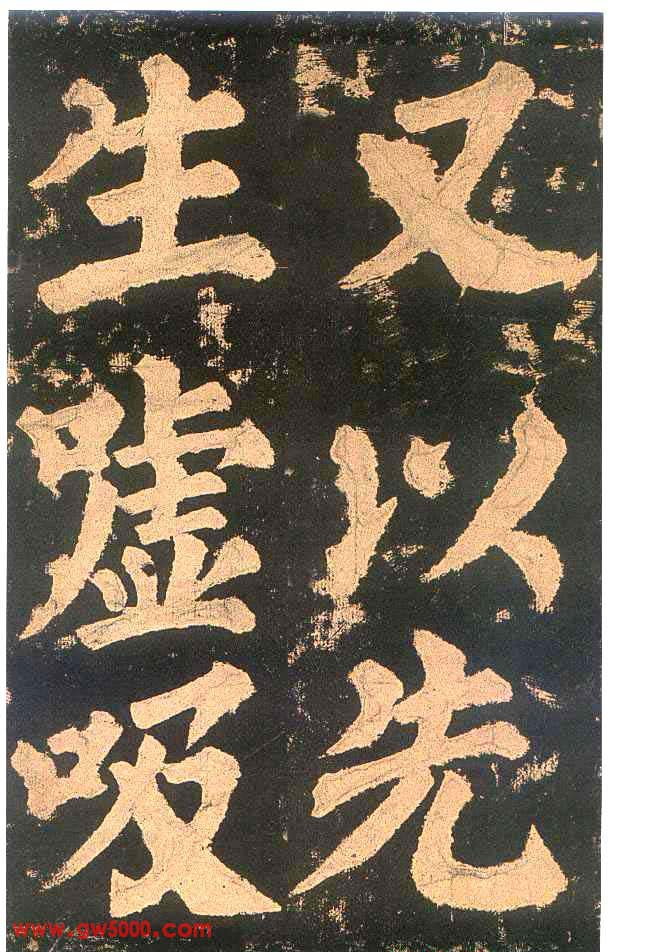 又以先
生嘘吸
www.gw5000.com